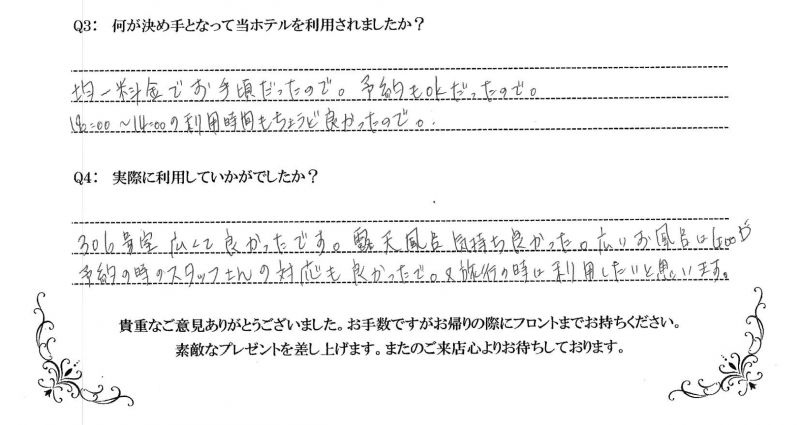 Q3: 何が決め手となって当ホテルを利用されましたか?
均一料金でお手頃だったので。予約もOKだったので。
18:00～14:00の利用時間もちょうど良かったので。
Q4: 実際に利用していかがでしたか?
306号室広くて良かったです。露天風呂気持ち良かった。広いお風呂はGOOD
予約の時のスタッフさんの対応も良かったで。又旅行の時は利用したいと思います。
貴重なご意見ありがとうございました。お手数ですがお帰りの際にフロントまでお持ちください。
素敵なプレゼントを差し上げます。またのご来店心よりお待ちしております。